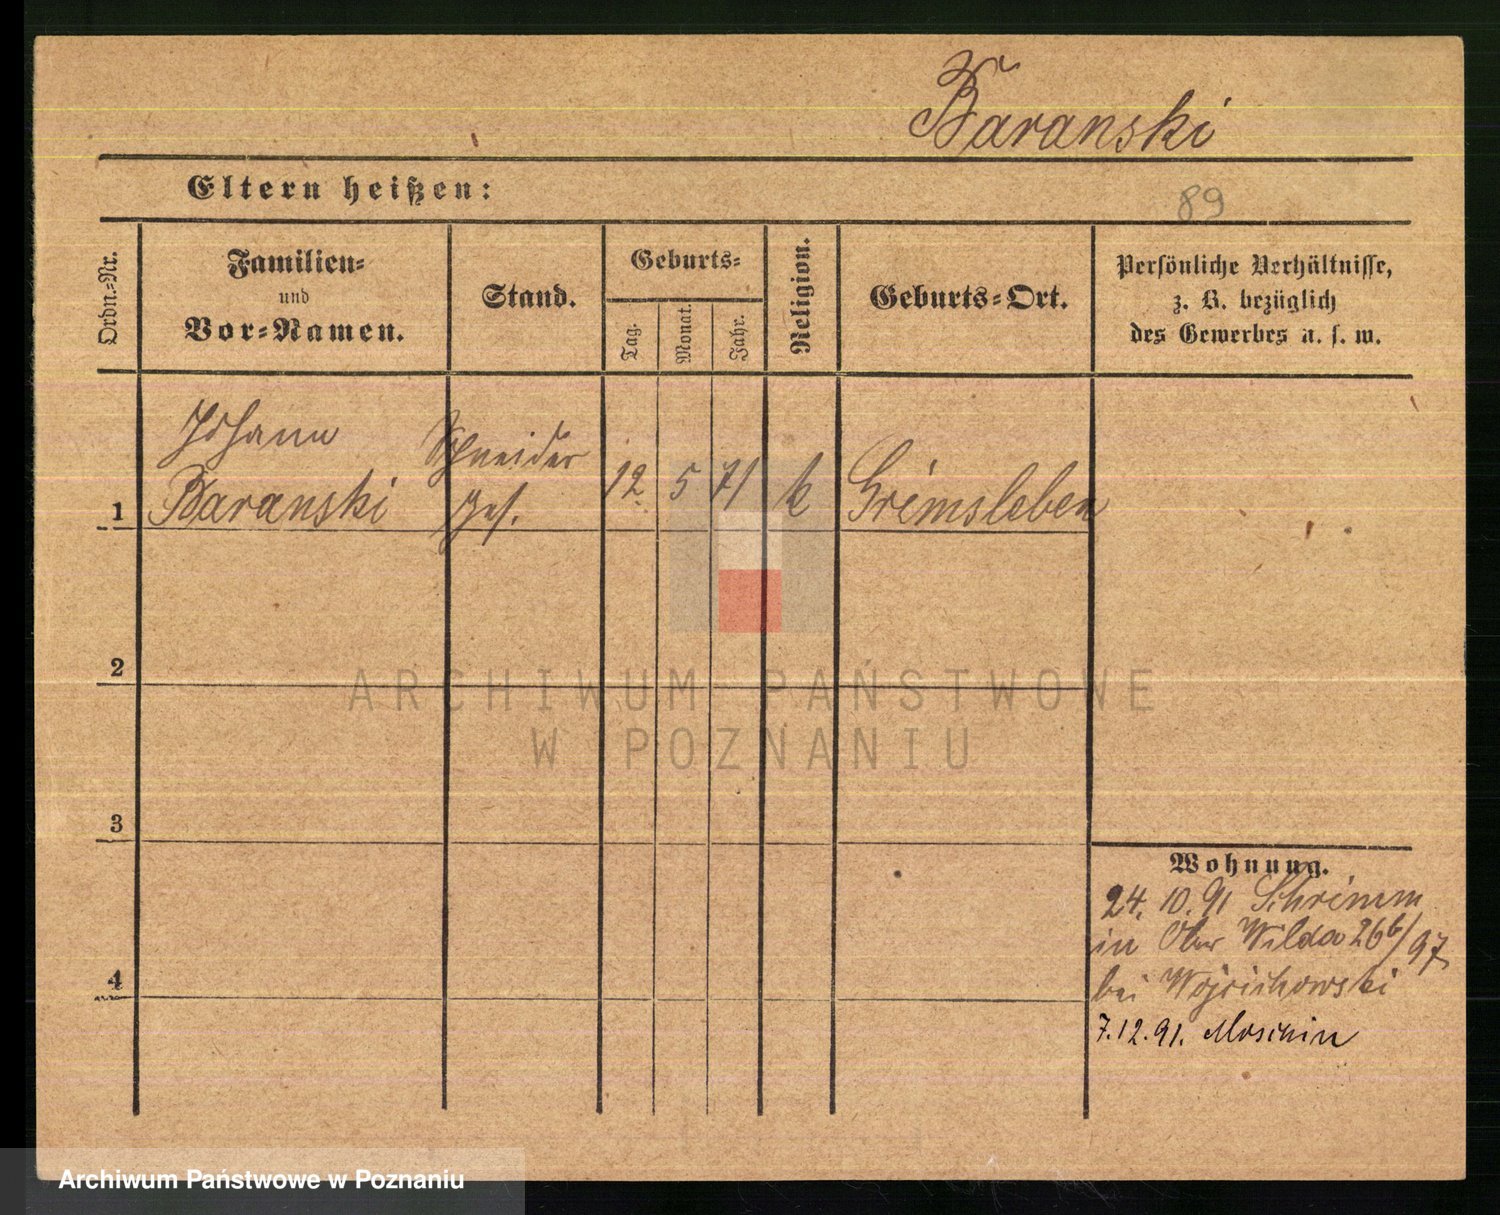 Baranski
Eltern heißen:
89
Ordn.-Nr.
Familien-
und
Vor-Namen.
Stand.
Geburts-
Tag.
Monat.
Jahr.
Religion.
Geburts-Ort.
Persönliche Verhältnisse,
z. B. bezüglich
des Gewerbes u. s. w.
Johann
Baranski
Schneider
Ges.
1
12. 5 71 k Grimsleben
2
3
4
Wohnung.
24. 10. 91 Schrimm
in Ober Wilda 26b/97
bei Wojcichowski
7. 12. 91. Moschin
ARCHIWUM PAŃSTWOWE
W POZNANIU
Archiwum Państwowe w Poznaniu